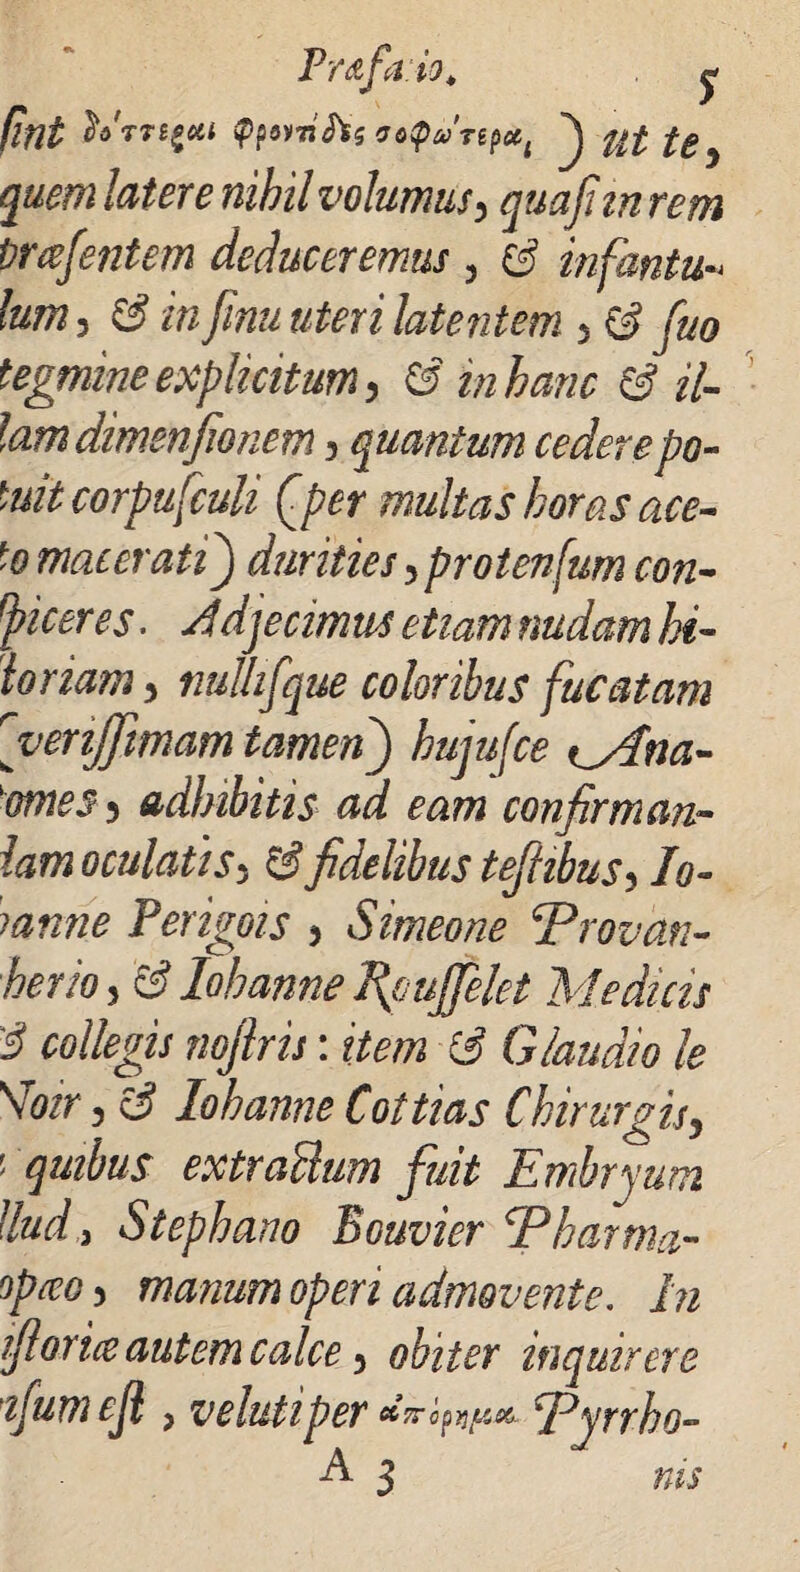 Præfa io. 5
ſint δεύτεραι φροντίδες σοφώτεραι ) ut te,
quem latere nihil volumus, quaſi in rem
præſentem deduceremus , & infantu-
lum, & in ſinu uteri latentem , & ſuo
tegmine explicitum, & in hanc & il-
lam dimenſionem , quantum cedere po-
tuit corpuſculi (per multas horas ace-
to macerati) durities, protenſum con-
ſpiceres. Adjecimus etiam nudam hi-
ſtoriam, nulliſque coloribus fucatam
(veriſſimam tamen) hujuſce Ana-
tomes, adhibitis ad eam confirman-
dam oculatis, & fidelibus teſtibus, Io-
hanne Perigois , Simeone Provan-
cherio, & Iohanne Rouſſelet Medicis
& collegis noſtris : item & Glaudio le
Noir, & Iohanne Cottias Chirurgis,
quibus extractum fuit Embryum
illud, Stephano Bouvier Pharma-
opæo, manum operi admovente. In
iſtoriæ autem calce, obiter inquirere
viſum eſt , veluti per ἀπόρημα Pyrrho-
A 3 nis